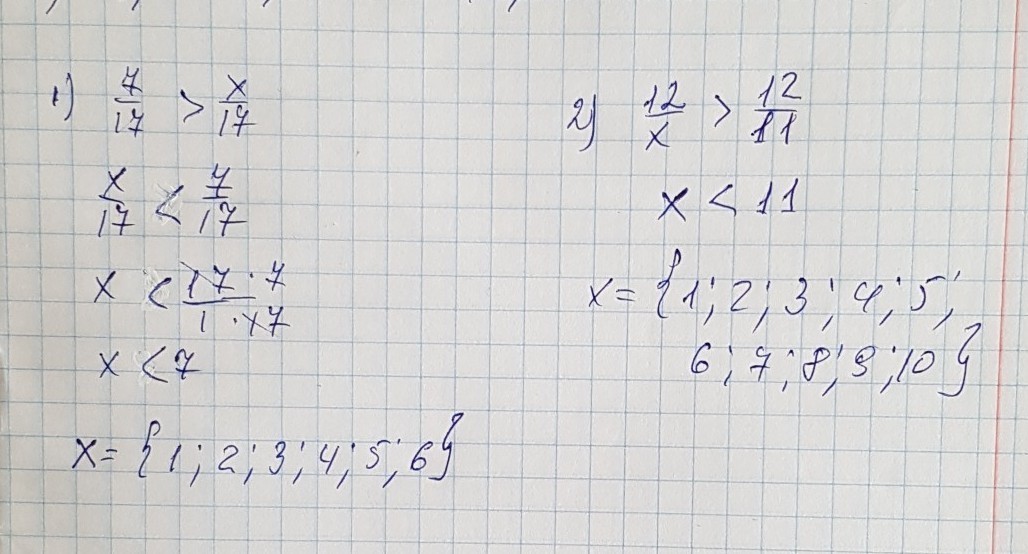 1) 7/17 > x/17
x/17 < 7/17
x < 17·7/1·17
x < 7
x = {1; 2; 3; 4; 5; 6}
2) 12/x > 12/11
x < 11
x = {1; 2; 3; 4; 5;
6; 7; 8; 9; 10}